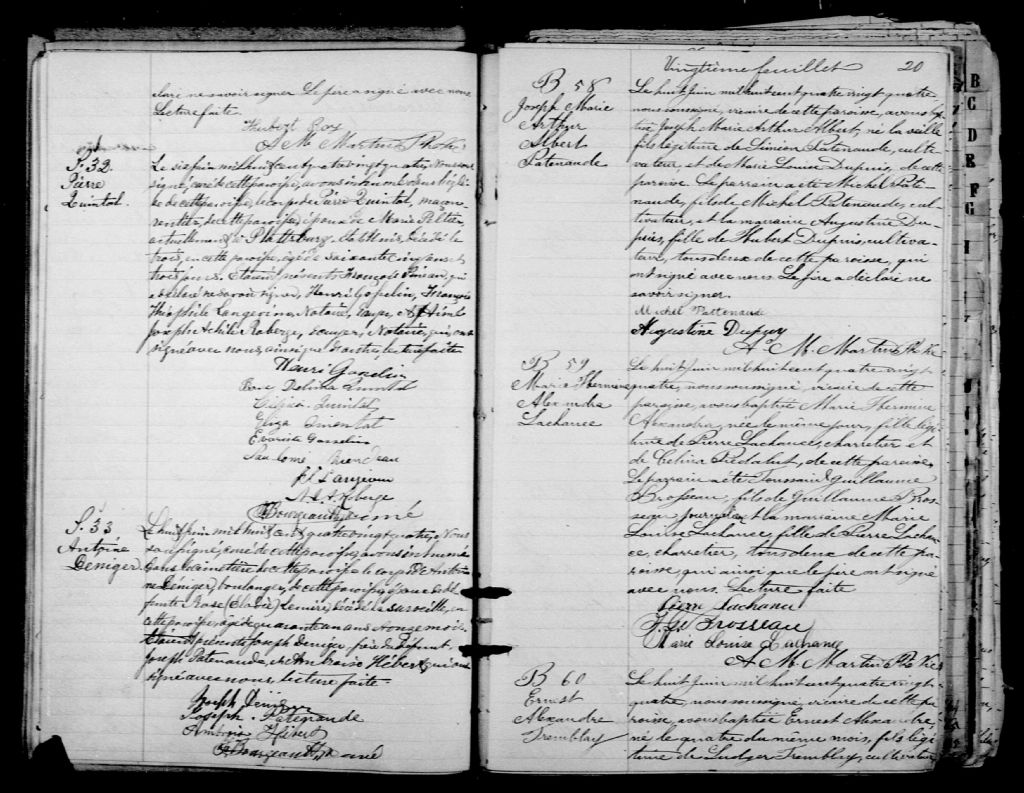 claré ne savoir signer. Le père a signé avec nous
Lecture faite.
Hubert Roy
A. M. Martin Ptre
S. 32.
Pierre
Quintal.
Le six juin mil huit cent quatre vingt quatre, Nous sous
signé, curé de cette paroisse, avons inhumé dans l'égli
se de cette paroisse, le corps de Pierre Quintal, maçon
rentier, de cette paroisse, époux de Marie Peltier
actuellement de Plattsburg, Etats Unis, décédé le
trois, en cette paroisse, âgé de soixante cinq ans et
trois jours. Etaient présents François qui
a déclaré ne savoir signer, Henri Gosselin, François
Théophile Langevin, Notaire, et
Joseph Achille Roberge, Ecuyer, Notaire, qui ont
signé avec nous, ainsi que d'autres, lecture faite
Henri Gosselin
Quintal
Quintal
Eliza Quintal
Evariste Gosselin
Paul Comé
Langevin
N. A. A. Roberge
Bourgeault, Ptre curé
S. 33
Antoine
Deniger
Le huit juin mil huit cent quatre vingt quatre, Nous
soussigné, curé de cette paroisse, avons inhumé
dans le cimetière de cette paroisse le corps de Antoi
ne Deniger, boulanger, de cette paroisse, époux de dé
funte Rose (Elodie) Lemire, décédé la surveille, en
cette paroisse, âgé de quarante un ans et onze mois.
Etaient présents Joseph Deniger, frère du défunt
Joseph Patenaude, et Ambroise Hébert, qui ont
signé avec nous, lecture faite
Joseph Déniger
Joseph Patenaude
Ambroise Hébert
Bourgeault, Ptre curé
Vingtième feuillet 20
B 58
Joseph Marie
Arthur
Albert
Patenaude
Le huit Juin mil huit cent quatre vingt quatre,
nous soussigné, vicaire de cette paroisse, avons bap
tisé Joseph Marie Arthur Albert, né la veille
fils légitime de Siméon Patenaude, culti
vateur, et de Marie Louise Dupuis, de cette
paroisse. Le parrain a été Michel Pate
naude, fils de Michel Patenaude, cul
tivateur, et la marraine Augustine Du
puis, fille de Hubert Dupuis, cultiva
teur, tous deux de cette paroisse, qui
ont signé avec nous. Le père a déclaré ne
savoir signer.
Michel Pattenaude
Augustine Dupuy
A. M. Martin Ptre Vic
B 59
Marie Hermine
Alexandra
Lachance
Le huit Juin mil huit cent quatre vingt
quatre, nous soussigné, vicaire de cette
paroisse, avons baptisé Marie Hermine
Alexandra, née le même jour, fille légi
time de Pierre Lachance, charretier et
de Célina Rédalut, de cette paroisse.
Le parrain a été Toussaint Guillaume
Brosseau, fils de Guillaume Bros
seau, journalier, et la marraine Marie
Louise Lachance, fille de Pierre Lachan
ce, charretier, tous deux de cette pa
roisse, qui ainsi que le père ont signé
avec nous. Lecture faite
Pierre Lachance
T. G. Brosseau
Marie Louise Lachance
A. M. Martin Ptre Vic
B 60
Ernest
Alexandre
Tremblay
Le huit Juin mil huit cent quatre vingt
quatre, nous soussigné, vicaire de cette pa
roisse, avons baptisé Ernest Alexandre,
né le quatre du même mois, fils légi
time de Ludger Tremblay, cultivateur
B
C
D
E
F
G
I